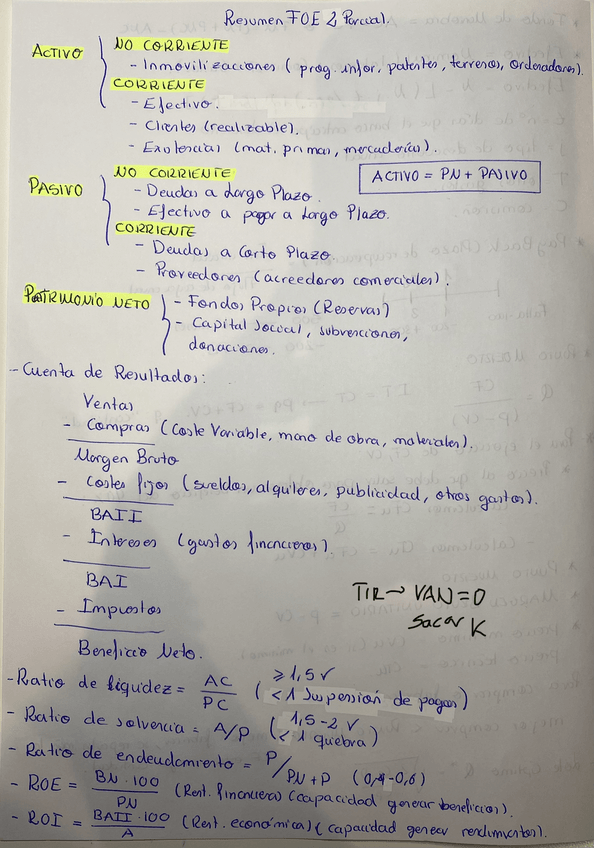 Resumen FOE 2 Parcial.
ACTIVO
NO CORRIENTE
- Inmovilizaciones (prog. infor, patentes, terrenos, ordenadores).
CORRIENTE
- Efectivo.
- Clientes (realizable).
- Existencias (mat. primas, mercaderías).
ACTIVO = PN + PASIVO
PASIVO
NO CORRIENTE
- Deudas a Largo Plazo.
- Efectivo a pagar a Largo Plazo.
CORRIENTE
- Deudas a Corto Plazo
- Proveedores (acreedores comerciales).
PATRIMONIO NETO
- Fondos Propios (Reservas)
- Capital social, subvenciones,
donaciones.
- Cuenta de Resultados:
Ventas
- Compras (Coste Variable, mano de obra, materiales).
Margen Bruto
- Costes fijos (sueldos, alquileres, publicidad, otros gastos).
BAII
- Intereses (gastos financieros).
BAI
- Impuestos
Beneficio Neto.
TIR → VAN = 0
Sacar K
- Ratio de liquidez = AC / PC ( ≥ 1,5 ✓ < 1 Suspensión de pagos)
- Ratio de solvencia = A/P ( 1,5 - 2 ✓ < 1 quiebra)
- Ratio de endeudamiento = P / PN + P (0,4-0,6)
- ROE = BN · 100 / PN (Rent. financiera) (capacidad generar beneficios).
- ROI = BAII · 100 / A (Rent. económica) (capacidad generar rendimientos).